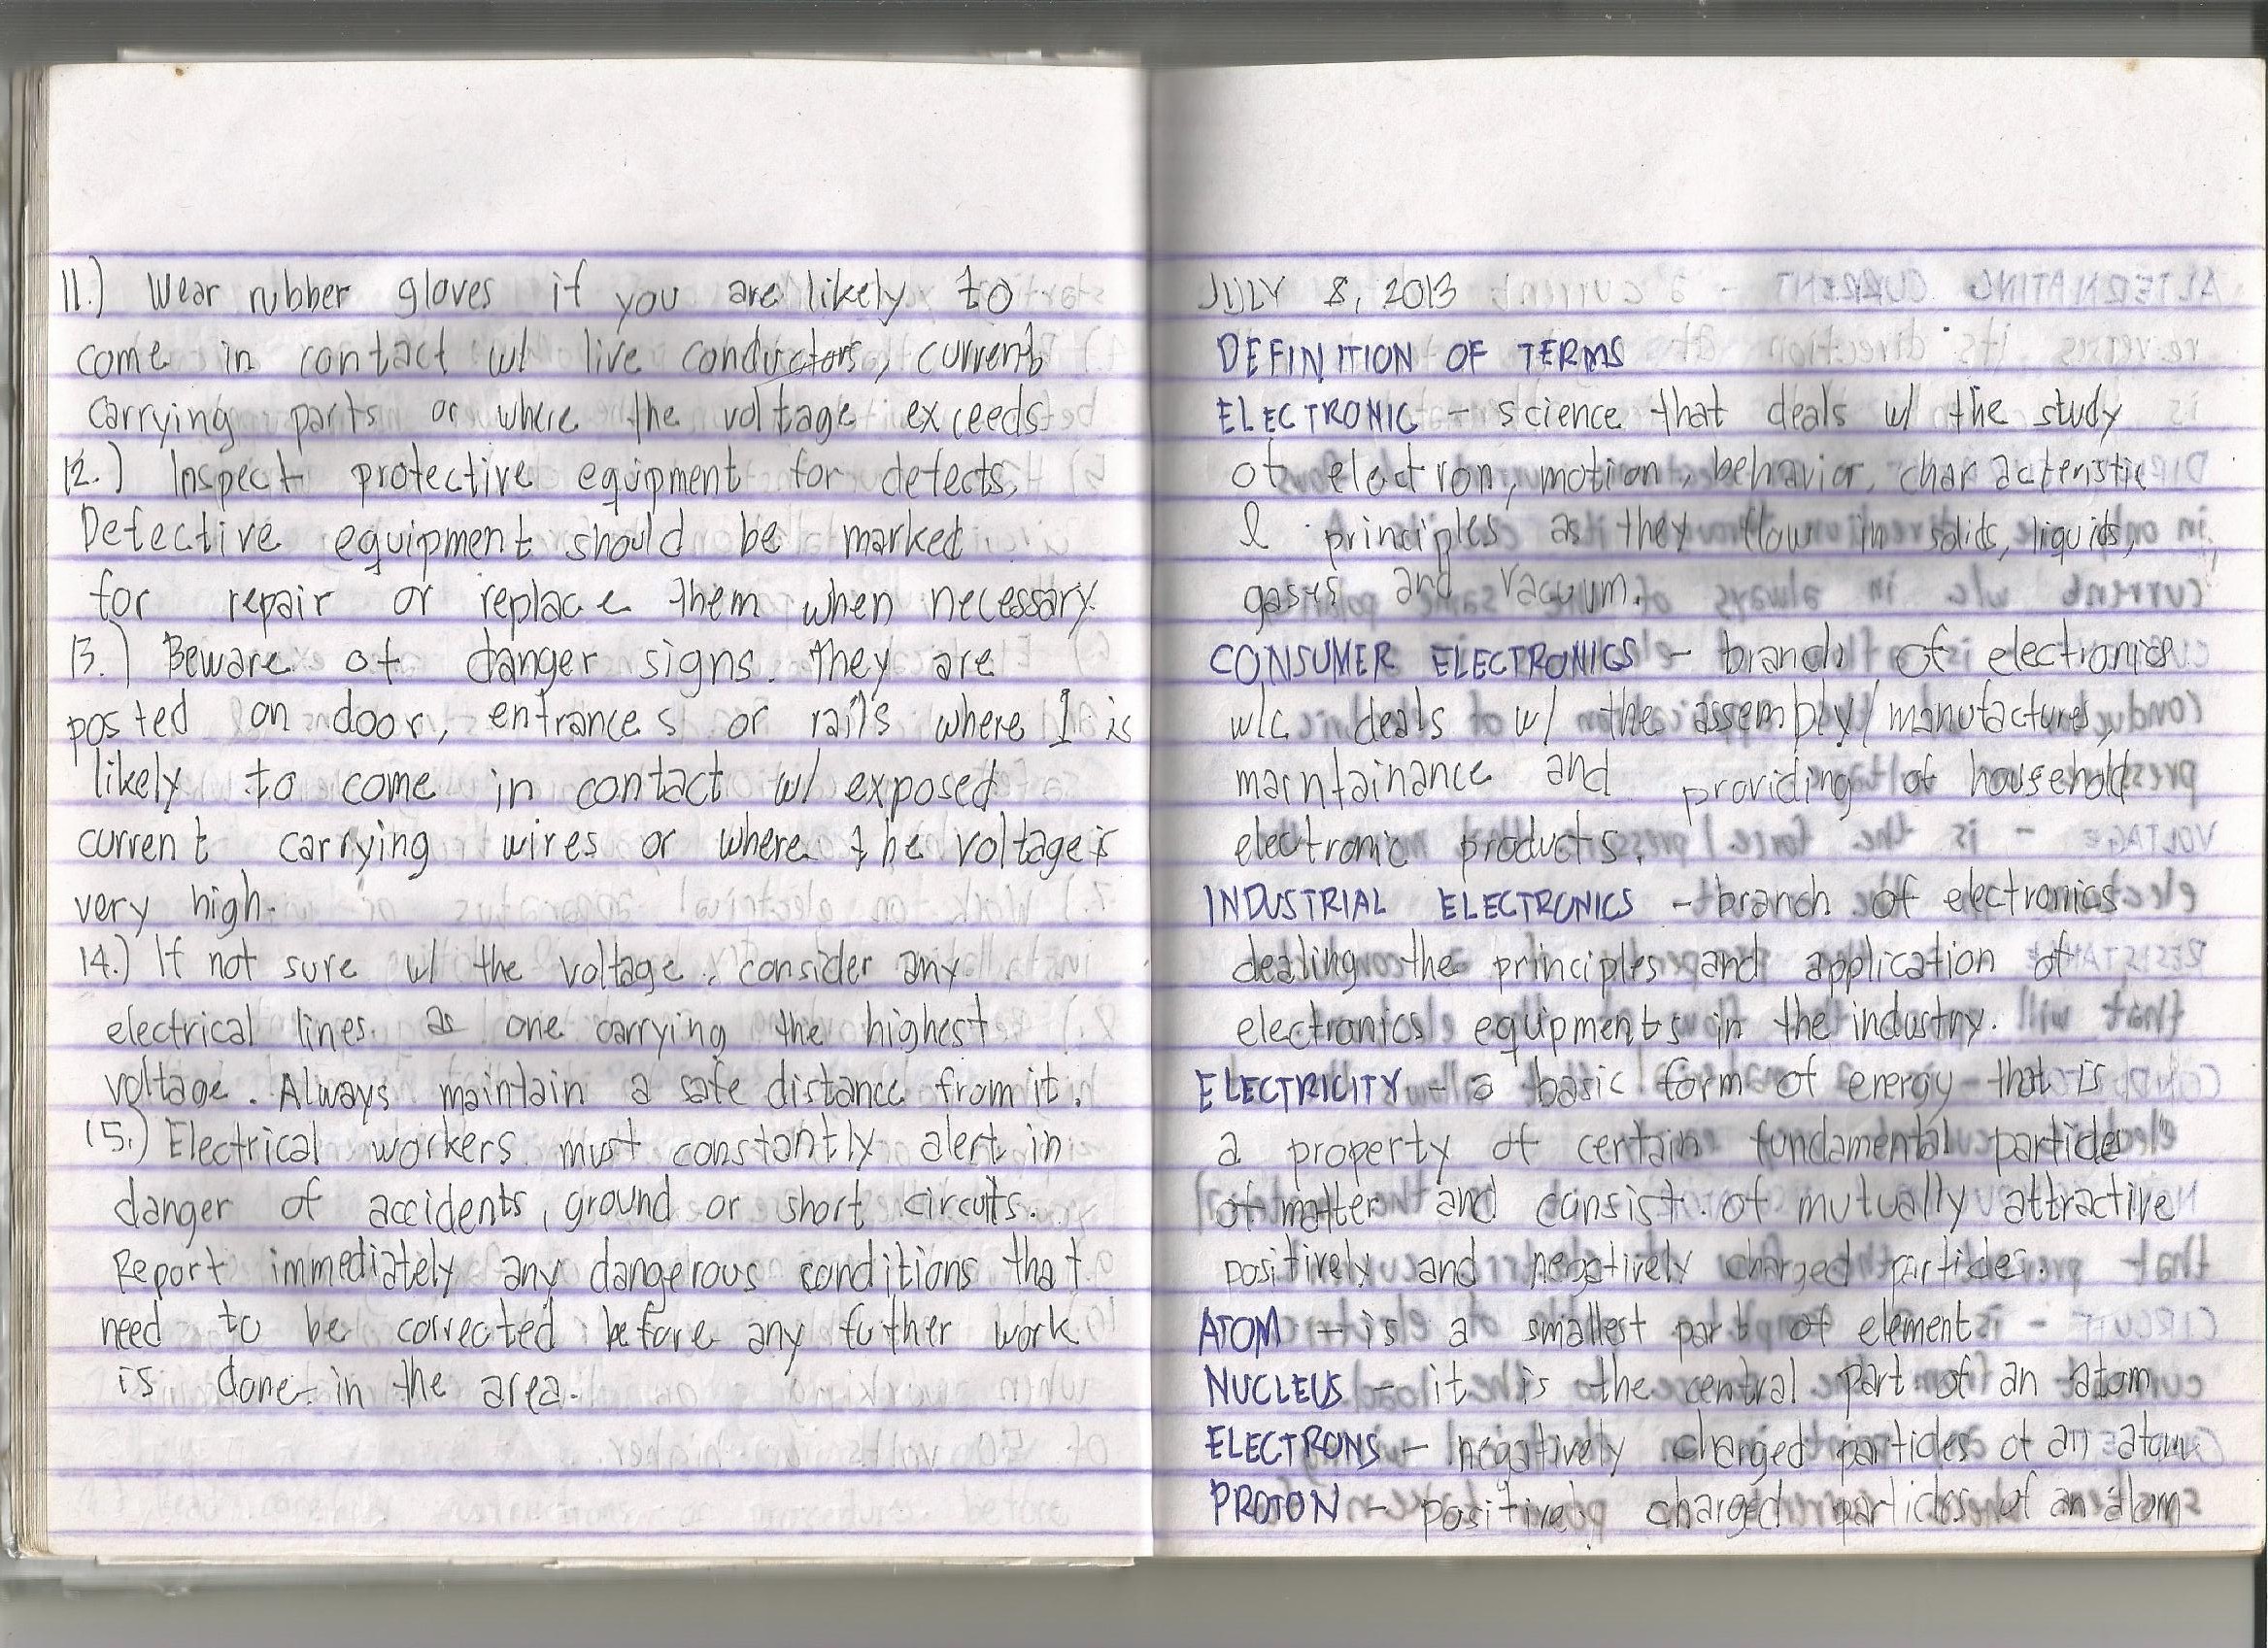 11.) Wear rubber gloves if you are likely to
come in contact w/ live conductors, current
carrying parts or where the voltage exceeds
12.) Inspect protective equipment for defects.
Defective equipment should be marked
for repair or replace them when necessary.
13.) Beware of danger signs. They are
posted on door, entrances or rails where I is
likely to come in contact w/ exposed
current carrying wires or where the voltage is
very high.
14.) If not sure w/ the voltage, consider any
electrical lines as one carrying the highest
voltage. Always maintain a safe distance from it.
15.) Electrical workers must constantly alert in
danger of accidents, ground or short circuits.
Report immediately any dangerous conditions that
need to be corrected before any futher work
is done in the area.
JULY 8, 2013
DEFINITION OF TERMS
ELECTRONIC - science that deals w/ the study
of electron, motion, behavior, characteristic
& principles as they flow in solids, liquids,
gases and vacuum.
CONSUMER ELECTRONICS - branch of electronics
w/c deals w/ the assembly/manufactures,
maintainance and providing of household
electronic products.
INDUSTRIAL ELECTRONICS - branch of electronics
dealing the principles and application of
electronics equipments in the industry.
ELECTRICITY - a basic form of energy that is
a property of certain fundamental particles
of matter and consist of mutually attractive
positively and negatively charged particles.
ATOM - is a smallest part of element
NUCLEUS - it is the central part of an atom
ELECTRONS - negatively charged particles of an atom
PROTON - positively charged particles of an atom